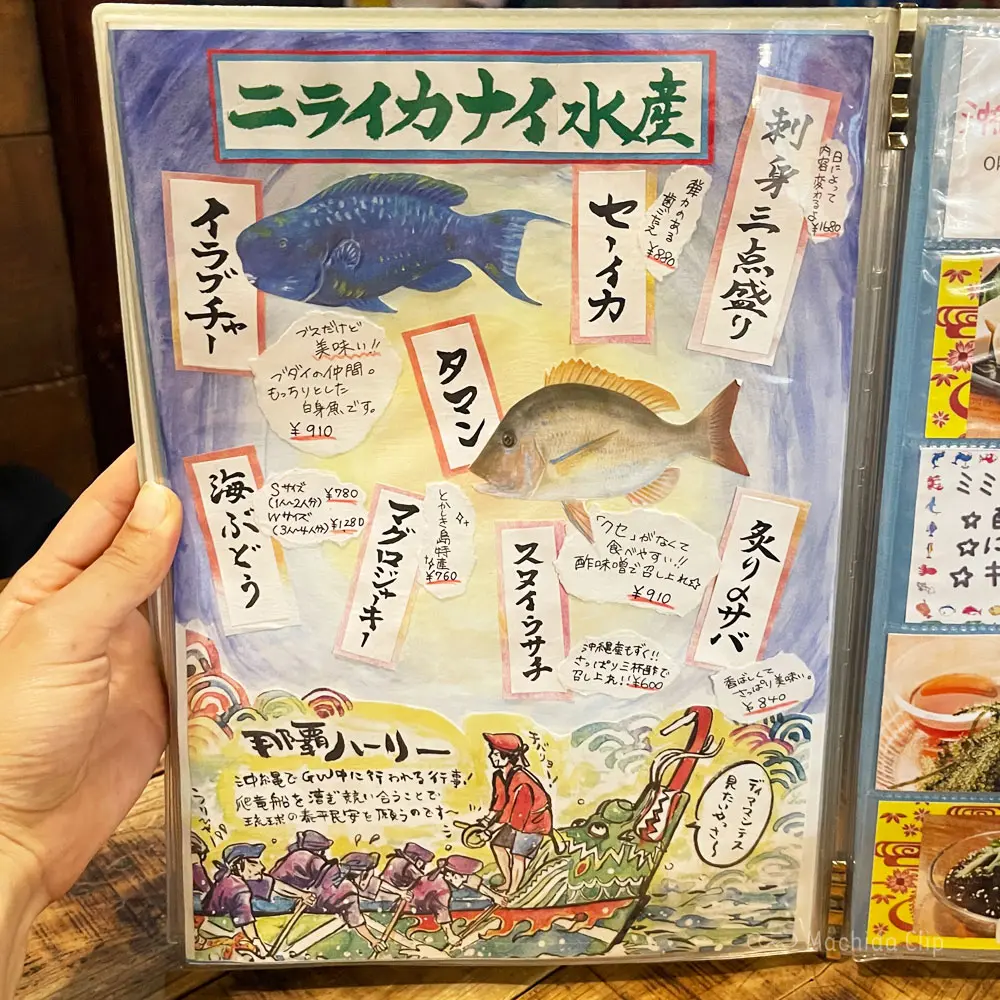 ニライカナイ水産
刺身三点盛り
日によって
内容変わるよ
¥1680
セーイカ
弾力のある
歯ごたえ
¥880
イラブチャー
ブスだけど
美味い!!
ブダイの仲間。
もっちりとした
白身魚です。
¥910
タマン
「クセ」がなくて
食べやすい!!
酢味噌で召し上れ☆
¥910
海ぶどう
Sサイズ
(1人~2人分) ¥780
Wサイズ
(3人~4人分) ¥1280
マグロジャーキー
とかしき島特産
¥760
スヌイウサチ
沖縄産もずく!!
さっぱり三杯酢で
召し上れ!!¥600
炙り〆サバ
香ばしくて
さっぱり美味い。
¥840
那覇ハーリー
沖縄でGW中に行われる行事!
爬竜船を漕ぎ競い合うことで
琉球の泰平民安を願うのです~
チバリョー!
ディアマンテス
見たいやっさ~
ミミ
Machida Clip